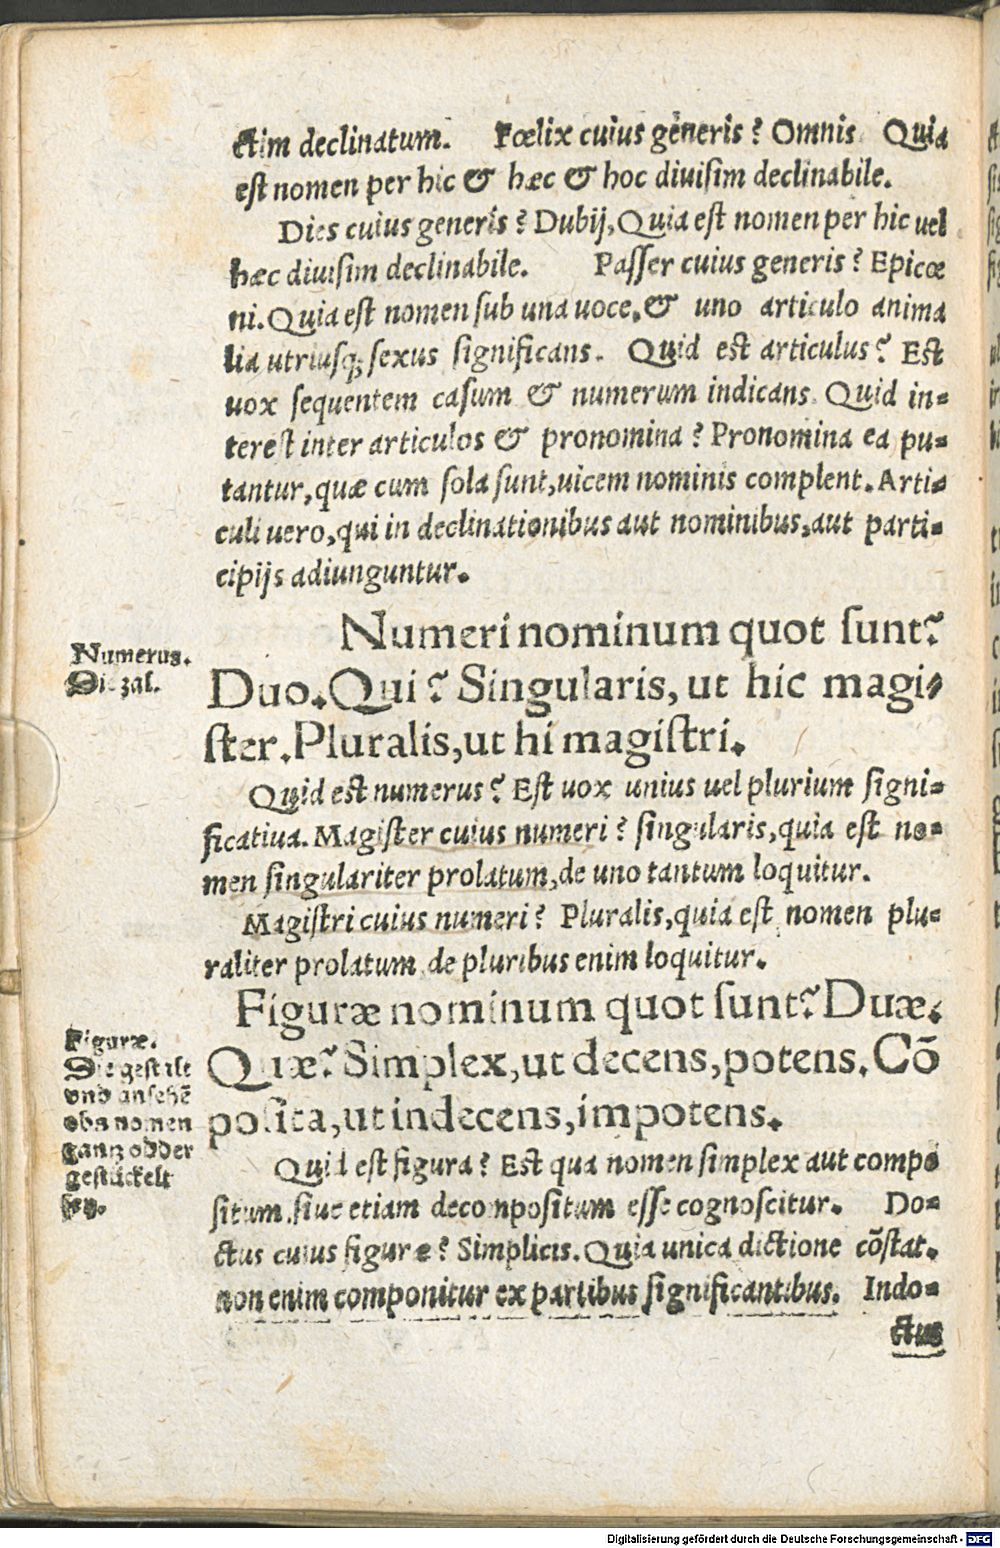 ctim declinatum. Fœlix cuius generis? Omnis Quia
est nomen per hic & hæc & hoc diuisim declinabile.
Dies cuius generis? Dubij, Quia est nomen per hic uel
hæc diuisim declinabile. Passer cuius generis? Epicœ
ni. Quia est nomen sub una uoce, & uno articulo anima
lia utriusq; sexus significans. Quid est articulus? Est
uox sequentem casum & numerum indicans. Quid in=
terest inter articulos & pronomina? Pronomina ea pu=
tantur, quæ cum sola sunt, uicem nominis complent. Arti=
culi uero, qui in declinationibus aut nominibus, aut parti=
cipijs adiunguntur.
Numerus.
Die zal.
Numeri nominum quot sunt?
Duo. Qui? Singularis, ut hic magi=
ster. Pluralis, ut hi magistri.
Quid est numerus? Est uox unius uel plurium signi=
ficatiua. Magister cuius numeri? singularis, quia est no=
men singulariter prolatum, de uno tantum loquitur.
Magistri cuius numeri? Pluralis, quia est nomen plu=
raliter prolatum de pluribus enim loquitur.
Figuræ.
Die gestalt
vnd ansehē
obs nomen
gantz odder
gestückelt
sey.
Figuræ nominum quot sunt? Duæ.
Quæ? Simplex, ut decens, potens. Cō
posita, ut indecens, impotens.
Quid est figura? Est qua nomen simplex aut compo
situm, siue etiam decompositum esse cognoscitur. Do=
ctus cuius figuræ? Simplicis. Quia unica dictione cōstat.
non enim componitur ex partibus significantibus. Indo=
ctus
Digitalisierung gefördert durch die Deutsche Forschungsgemeinschaft - DFG